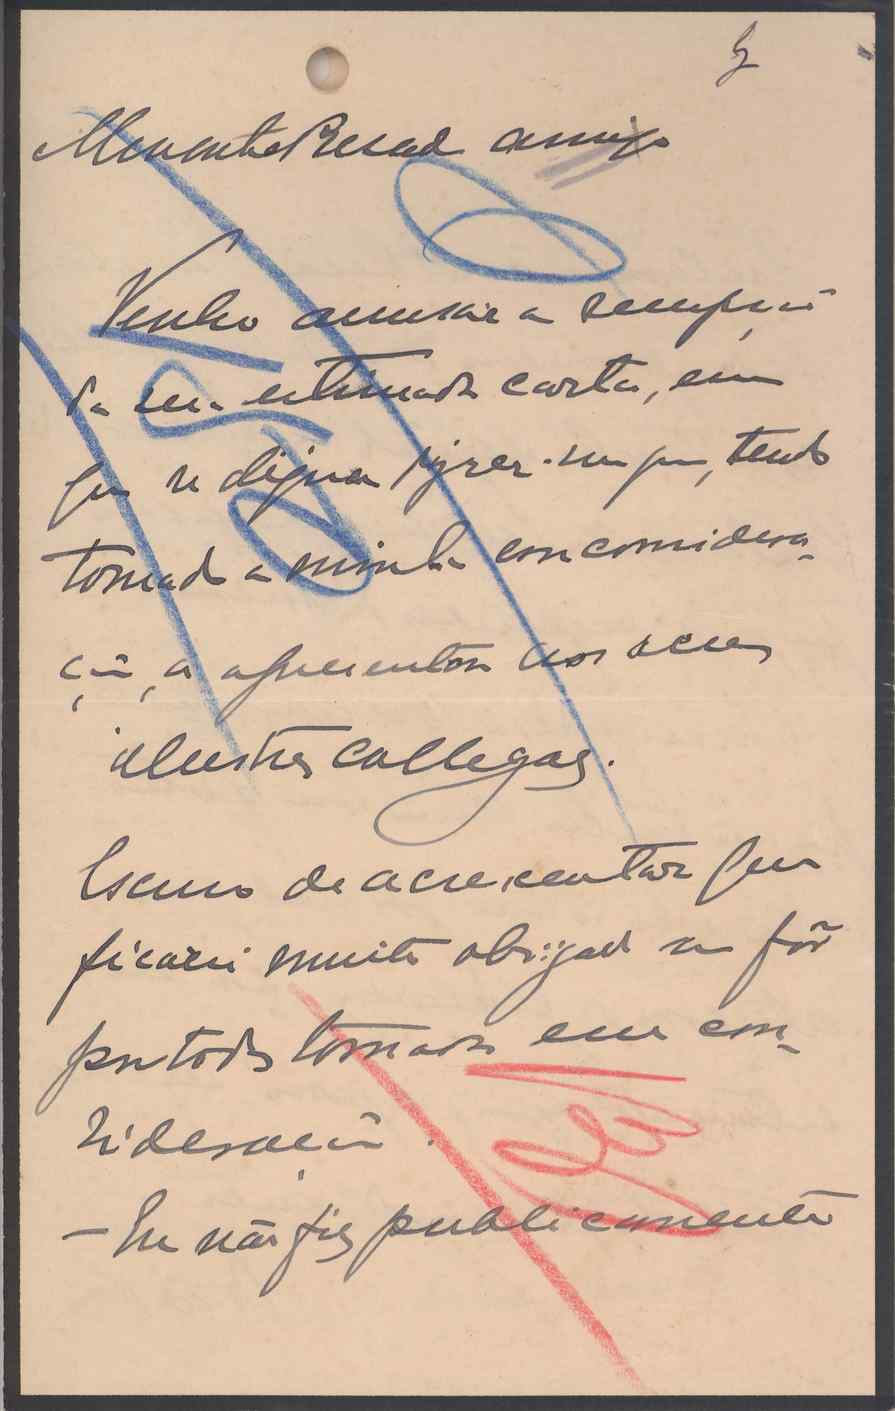 Meu muito Presado amigo
Venho accusar a recepção
da sua estimada carta, em
que se digna dizer-me que, tendo
tomado a minha em considera-
ção, a apresentou aos seus
illustres collegas.
Escuso de acrescentar que
ficarei muito obrigado se fôr
por todos tomada em con-
sideração.
— Eu não fiz publicamente